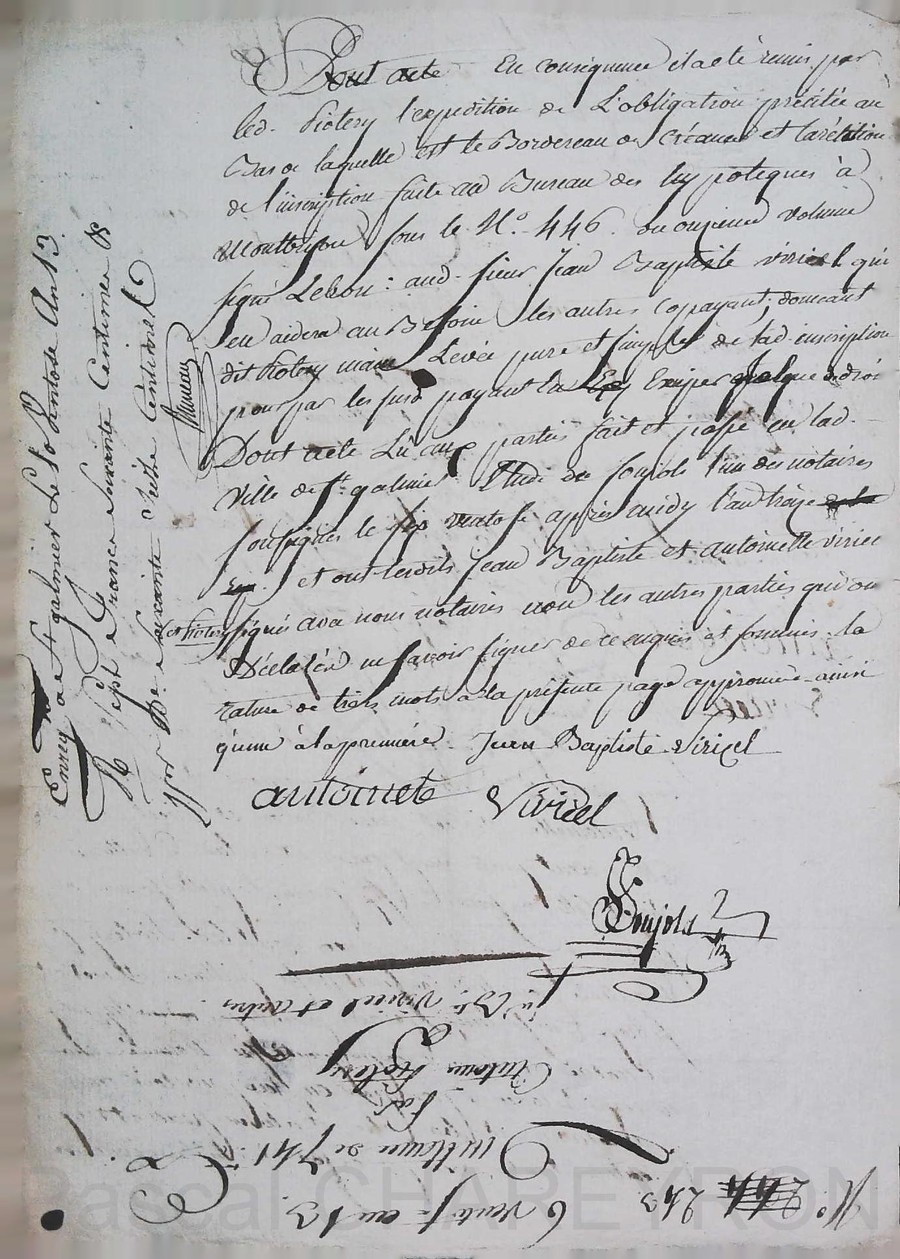 Dont acte En conséquence il a été remis par
led. Piotery l'expedition de L'obligation précitée au
Bas de laquelle est le Bordereau de Créance et la
de l'inscription faite au Bureau des hypoteques à
Montbrison sous le N.o 446. du onzieme volume
signé Lebon: aud. sieur Jean Baptiste viricel qui
en aidera au Besoin les autres copayant, donnant
dit Piotery main Levée pure et simple de lad. inscription
pour par les susd payant
Dont acte Lu aux parties fait et passé en lad.
ville de St. galmier Etude de soujols l'un des notaires
soussignés le six ventose après midy l'an treize
et ont lesdits Jean Baptiste et antoinette viricel
signés avec nous notaires non les autres parties qui ont
Déclaré ne savoir signer de ce enquis et sommés. la
rature de trois mots a la présente page approuvée ainsi
qu'une à la première. Jean Baptiste Viricel
antoinete Viricel
Soujols
Enreg. a St galmier Le 10 Ventose An 13.
R sept francs soixante Centimes
pour De soixante Seize Centimes
et Piotery
N.o 243
6 ventose an 13
Quittance de 741
Par
Antoine Piotery
a
jn. Bte. viricel et autres
Pascal CHAREYRON